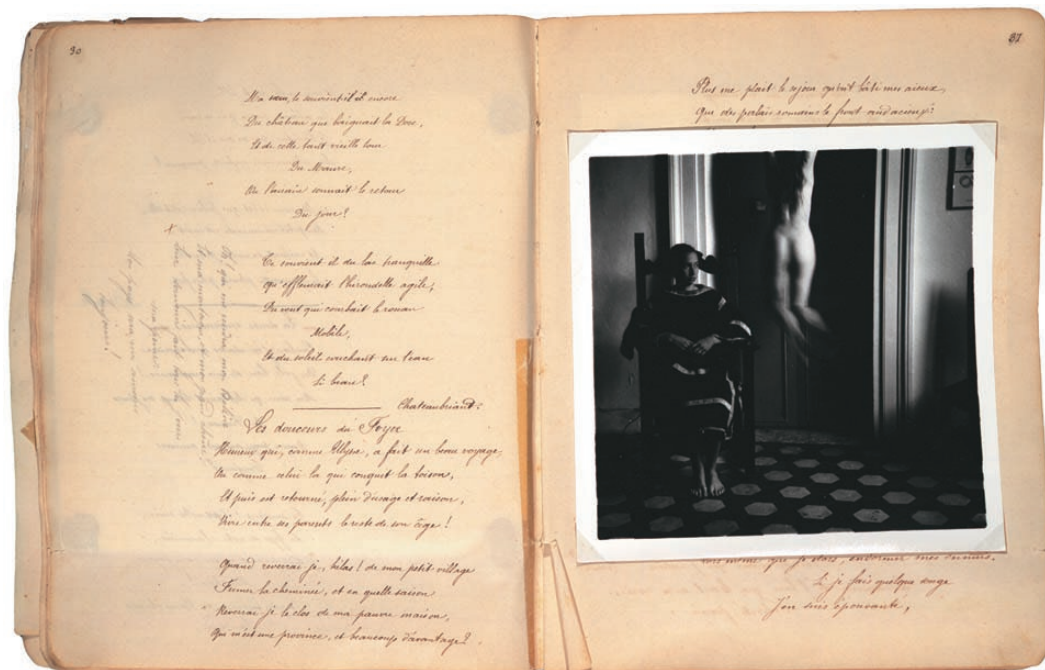 30
Ma sœur, te souvient-il encore
Du château que baignait la Dore,
Et de cette tant vieille tour
Du Maure,
Où l'airain sonnait le retour
Du jour!
x
Te souvient il du lac tranquille
Qu'effleurait l'hirondelle agile;
Du vent qui courbait le roseau
Mobile,
Et du soleil couchant sur l'eau
Si beau?
Chateaubriant.
Oh! qui me rendra mon Hélène
Et ma montagne, et mon grand chêne!
Leur souvenir fait tous les jours
ma peine
Mon pays sera mes amours
Toujours!
Les douceurs du Foyer
Heureux qui, comme Ulysse, a fait un beau voyage,
Ou comme celui la qui conquit la toison,
Et puis est retourné, plein d'usage et raison,
Vivre entre ses parents le reste de son âge!
Quand reverrai je, hélas! de mon petit village
Fumer la cheminée, et en quelle saison
Reverrai je le clos de ma pauvre maison,
Qui m'est une province, et beaucoup d'avantage?
31
Plus me plait le séjour qu'ont bâti mes aieux,
Que des palais romains le front audacieux:
que je dors, endormir mes
Si je fais quelque songe
J'en suis épouvanté,